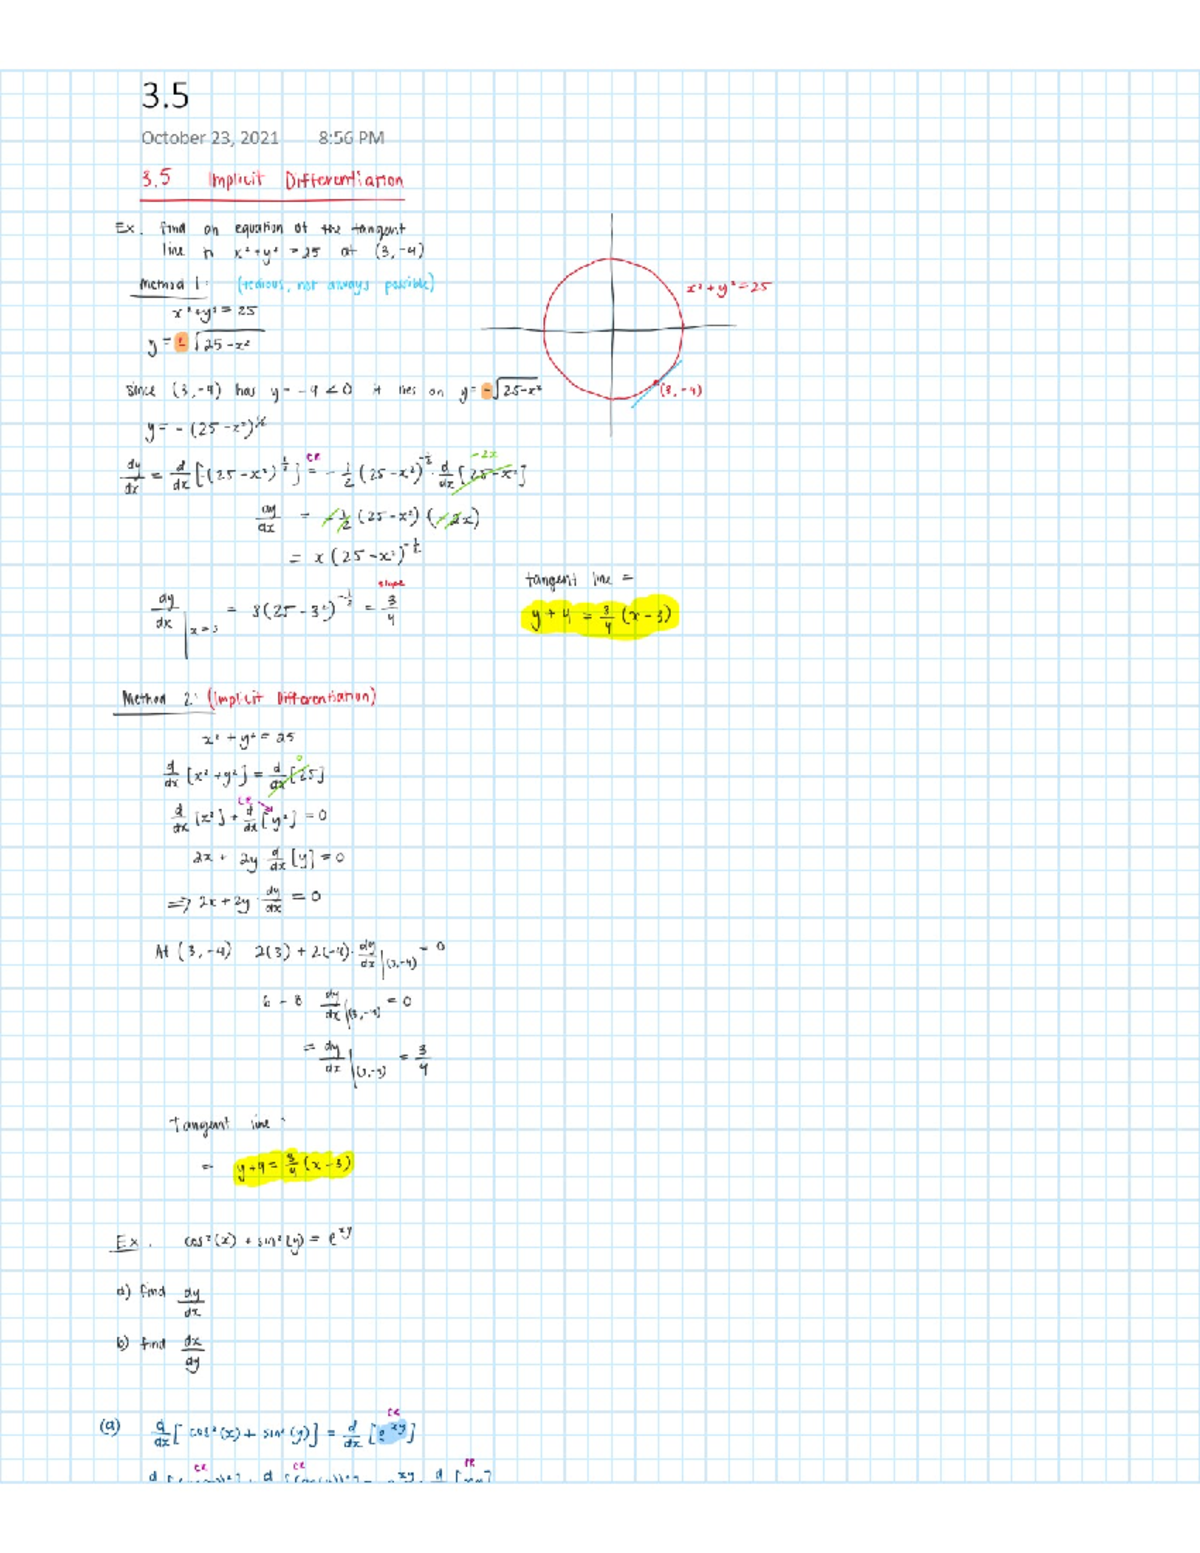 3.5
October 23, 2021 8:56 PM
3.5 Implicit Differentiation
Ex. find an equation of the tangent
line to x² + y² = 25 at (3, -4)
Method 1: (tedious, not always possible)
x² + y² = 25
y = ± √25 - x²
x² + y² = 25
(3, -4)
since (3, -4) has y = -4 < 0 it lies on y = -√25-x²
y = - (25 - x²)^½
dy/dx = d/dx [-(25 - x²)^½] = -½ (25 - x²)^-½ · d/dx [25 - x²]
CR
-2x
dy/dx = -½ (25 - x²) (-2x)
= x (25 - x²)^-½
dy/dx | x = 3 = 3(25 - 3²)^-½ = 3/4
slope
tangent line =
y + 4 = 3/4 (x - 3)
Method 2: (Implicit Differentiation)
x² + y² = 25
d/dx [x² + y²] = d/dx [25]
0
CR
d/dx [x²] + d/dx [y²] = 0
2x + 2y d/dx [y] = 0
=> 2x + 2y · dy/dx = 0
At (3, -4) 2(3) + 2(-4) · dy/dx |(3,-4) = 0
6 - 8 dy/dx |(3,-4) = 0
= dy/dx |(3,-4) = 3/4
Tangent line :
= y + 4 = 3/4 (x - 3)
Ex. cos²(x) + sin²(y) = e^xy
a) find dy/dx
b) find dx/dy
CR
(a) d/dx [cos²(x) + sin²(y)] = d/dx [e^xy]
CR CR PR